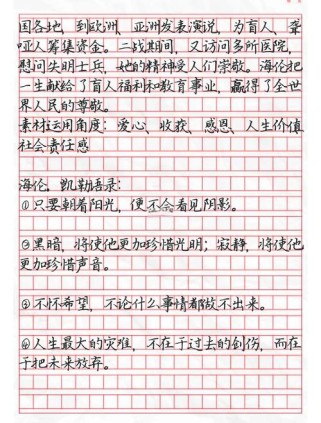 国各地,到欧洲、亚洲发表演说,为盲人、聋
哑人筹集资金。二战期间,又访问多所医院,
慰问失明士兵,她的精神受人们崇敬。海伦把
一生献给了盲人福利和教育事业,赢得了全世
界人民的尊敬。
素材运用角度:爱心、收获、感恩、人生价值
社会责任感
海伦.凯勒语录:
①只要朝着阳光,便不会看见阴影。
②黑暗,将使他更加珍惜光明;寂静,将使他
更加珍惜声音。
③不怀希望,不论什么事情都做不出来。
④人生最大的灾难,不在于过去的创伤,而在
于把未来放弃。